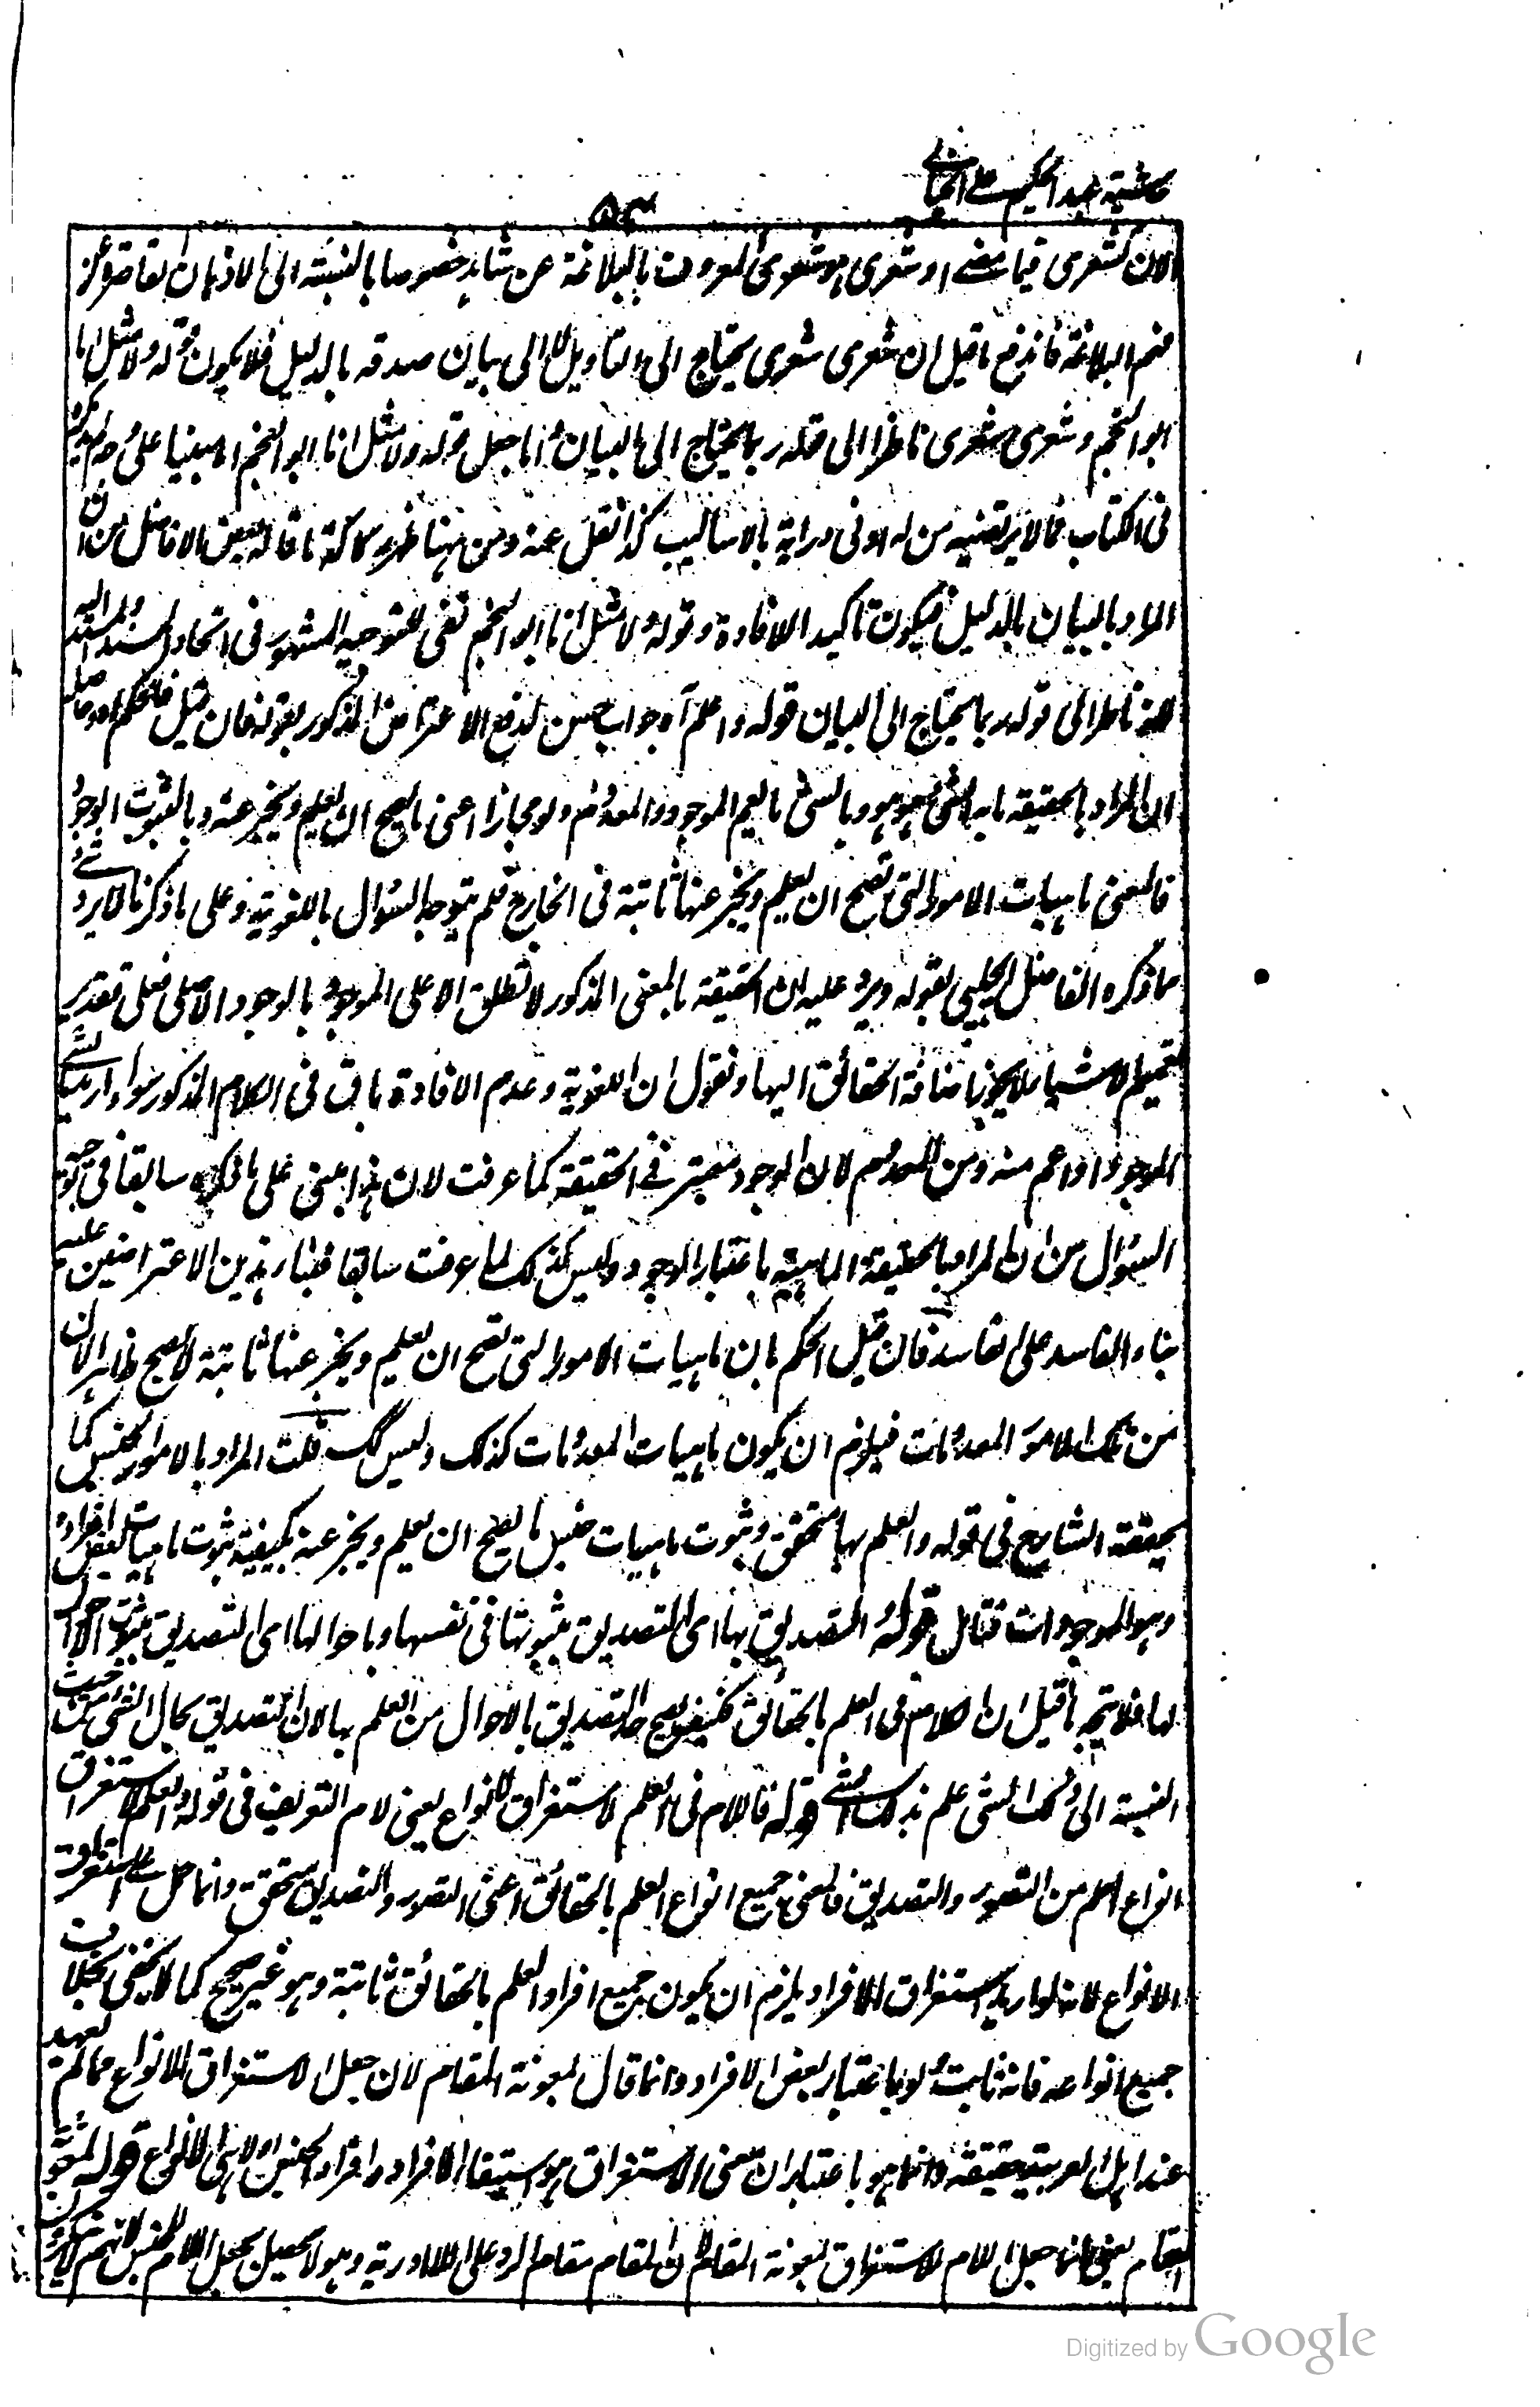 حاشية عبد الحكيم على الخيالي
٥٣
الآن كشعرى فيما مضى او شعرى هو شعرى المعروف بالبلاغة عن شايد خصوصا بالنسبة الى الاذهان القاصرة عن
فهم البلاغة فاندفع ما قيل ان شعرى شعرى يحتاج الى التاويل لا الى بيان صدقه بالدليل فلا يكون قوله ولا مثل انا
ابو النجم وشعرى شعرى ناظرا الى قوله ربما يحتاج الى البيان واما جعل قوله ولا مثل انا ابو النجم اه مبنيا على
فى الكتاب فمالا يرتضيه من له ادنى دراية بالاساليب كذا نقل عنه ومن ههنا ظهر ركاكة ما قاله بعض الافاضل من ان
المراد بالبيان بالدليل فيكون تاكيد الافادة وقوله ولا مثل انا ابو النجم نفى للتوجيه المشهور فى اتحاد المسند والمسند اليه
لانه ناظر الى قوله ربما يحتاج الى البيان قوله واعلم آه جواب حسن لدفع الاعتراض المذكور بقوله فان قيل فالحكم اه وحاصله
ان المراد بالحقيقة ما به الشئ هو هو وبالشئ ما يعم الموجود والمعدوم ولو مجازا اعنى ما يصح ان يعلم ويخبر عنه وبالثبوت الوجود
فالمعنى ماهيات الامور التى تصح ان يعلم ويخبر عنها ثابتة فى الخارج فلم يتوجه السؤال باللغوية وعلى ما ذكرنا لا يرد شئ
مما ذكره الفاضل الجلبى بقوله ويرد عليه ان الحقيقة بالمعنى المذكور لا تطلق الا على الموجود بالوجود الاصلى فعلى تقدير
تعميم الاشياء لا يجوز اضافة الحقائق اليها ونقول ان اللغوية وعدم الافادة باق فى الكلام المذكور سواء اريد بالشئ
الموجود او اعم منه ومن المعدوم لان الوجود معتبر فى الحقيقة كما عرفت لان هذا مبنى على ما ذكره سابقا فى توجيه
السؤال من ان المراد بالحقيقة الماهية باعتبار الوجود وليس كذلك لما عرفت سابقا فبناء هذين الاعتراضين عليه
بناء الفاسد على الفاسد فان قيل الحكم بان ماهيات الامور التى تصح ان يعلم ويخبر عنها ثابتة لا يصح ظاهرا لان
من تلك الامور المعدومات فيلزم ان يكون ماهيات المعدومات كذلك وليس كك قلت المراد بالامور الجنس كما
يحققه الشارح فى قوله والعلم بها متحقق وثبوت ماهيات جنس ما يصح ان يعلم ويخبر عنه يكفيه ثبوت ماهيات بعض افراده
وهو الموجودات فتامل قوله التصديق بها اى التصديق بثبوتها فى نفسها وباحوالها اى التصديق بثبوت الاحوال
لها فلا يتجه ما قيل ان الكلام فى العلم بالحقائق فكيف يصح عد التصديق بالاحوال من العلم بها لان التصديق بحال الشئ من حيث
النسبة الى ذلك الشئ علم بذلك الشئ قوله فاللام فى العلم لاستغراق الانواع يعنى لام التعريف فى قوله والعلم لاستغراق
انواع العلم من التصور والتصديق فالمعنى جميع انواع العلم بالحقائق اعنى التصور والتصديق متحقق وانما حمل على استغراق
الانواع لانه لو اريد استغراق الافراد يلزم ان يكون جميع افراد العلم بالحقائق ثابتة وهو غير صحيح كما لا يخفى بخلاف
جميع انواعه فانه ثابت ولو باعتبار بعض الافراد وانما قال لمعونة المقام لان جعل الاستغراق للانواع مما لم يعهد
عند اهل العربية حقيقة وانما هو باعتبار ان معنى الاستغراق هو استيفاء الافراد وافراد الجنس اولا هى الانواع قوله لمعونة
المقام يعنى انما جعل اللام للاستغراق بمعونة المقام لان المقام مقام الرد على اللاادرية وهو لا يحصل بجعل اللام للجنس لانهم لا ينكرون
Digitized by Google